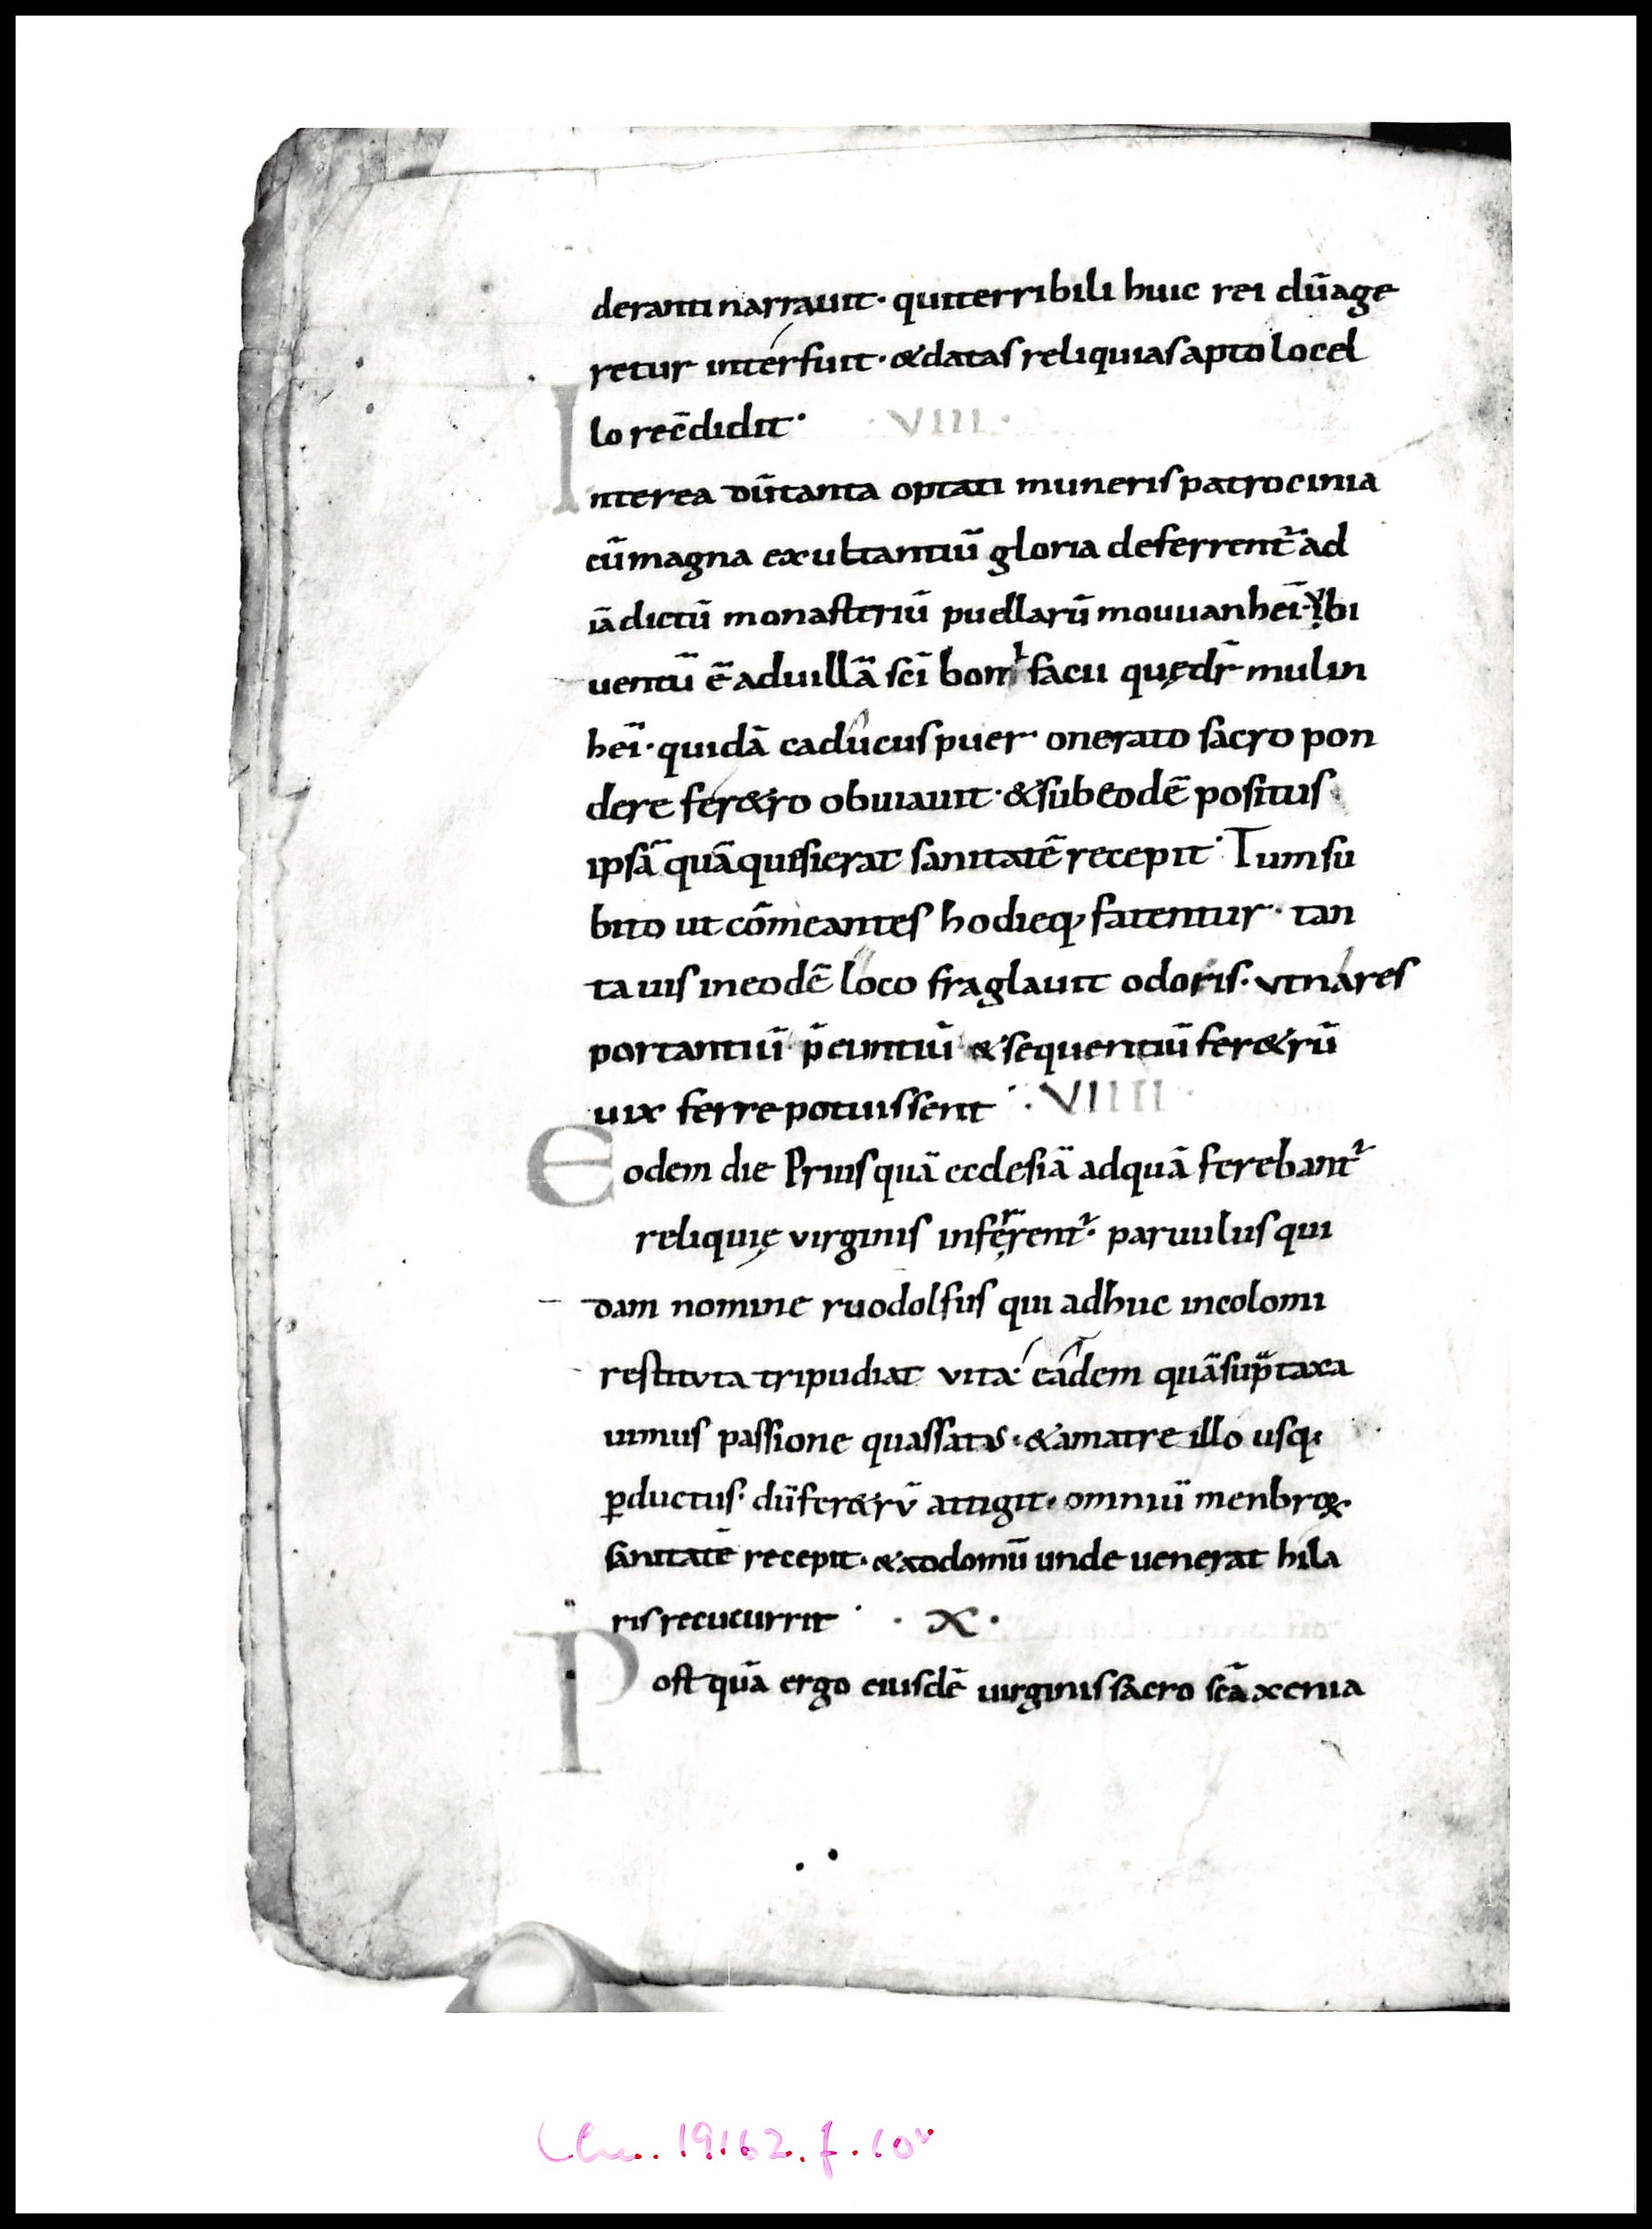 deranti narrauit· qui terribili huic rei dū age
retur interfuit· & datas reliquias apto locel
lo recōdidit· ·VIII·
Interea dū tanta optati muneris patrocinia
cū magna exultantiū gloria deferrent᷑ ad
iā dictū monasteriū puellarū mouuanhei̅· ibi
uentū ē ad uillā sc̄i bonifacii quę dr̄ mulin
hei̅· quidā caducus puer onerato sacro pon
dere fer&ro obuiauit· & sub eodē positus
ipsā quā quesierat sanitatē recepit· Tum su
bito ut cōmeantes hodieq; fatentur· tan
ta uis in eodē loco fraglauit odoris· vt nares
portantiū p̄euntiū & sequentiū fer&rū
uix ferre potuissent· ·VIIII·
Eodem die Prius quā ecclesiā ad quā ferebant᷑
reliquię virginis inferrent᷑· paruulus qui
dam nomine ruodolfus qui adhuc incolomi
restituta tripudiat vita· eadem quā sup̄taxa
uimus passione quassatus· & a matre illo usq;
ꝑductus· dū fer&rv̄ attigit· omniū menbroꝝ
sanitatē recepit· & ad domū unde uenerat hila
ris recucurrit· ·X·
Postquā ergo eiusdē uirginis sacro sc̄a xenia
Clm. 19162. f. 10v